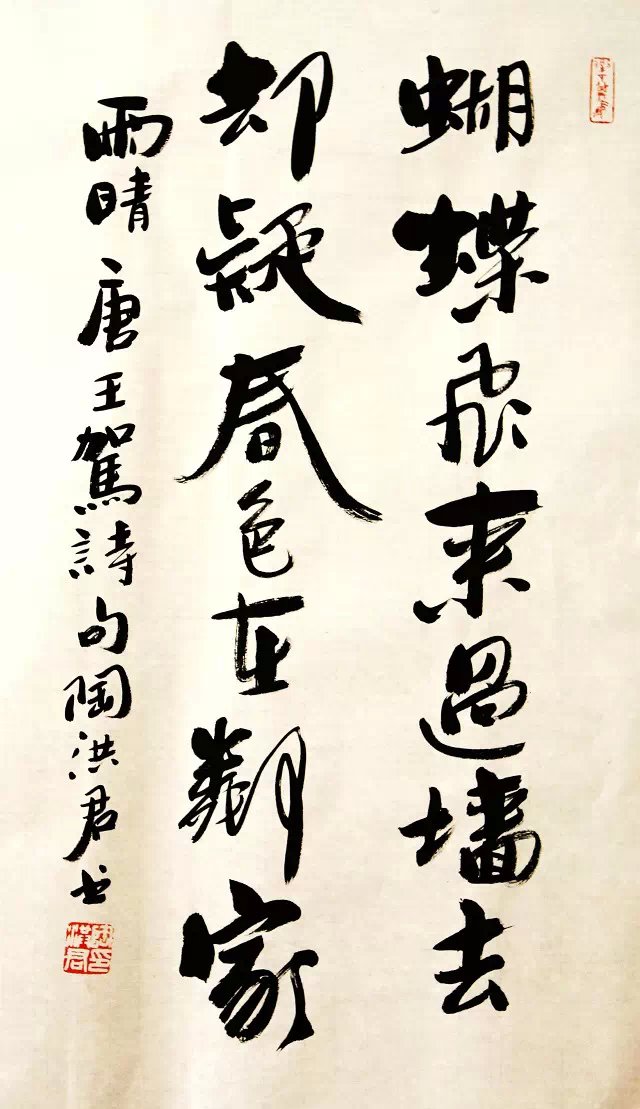 蝴蝶飛来過墙去
却疑春色在鄰家
雨晴 唐王駕詩句 陶洪君书